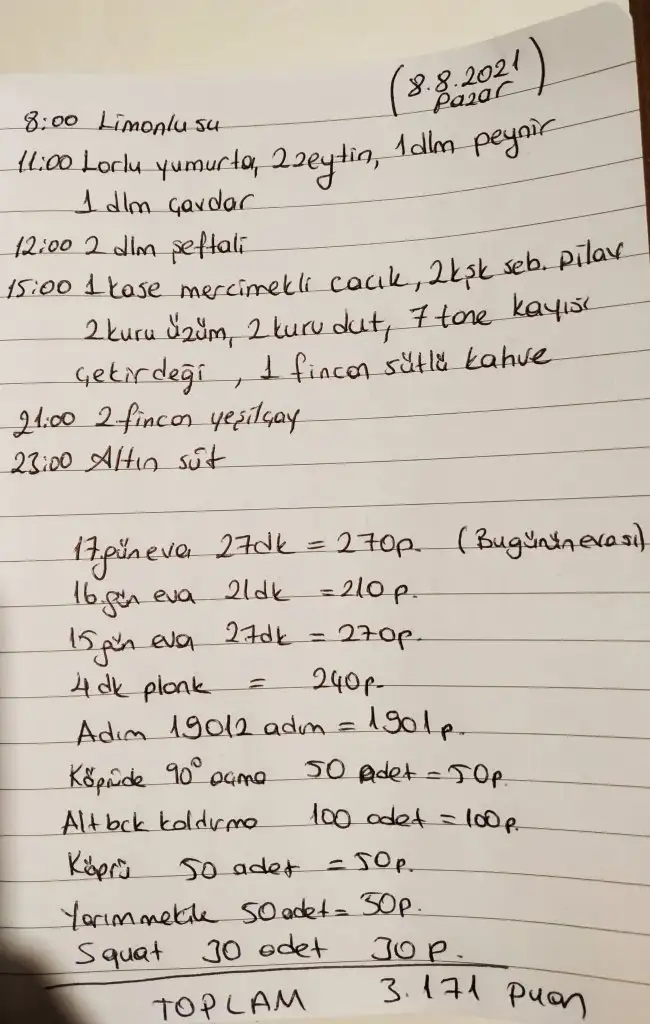 (8.8.2021)
Pazar
8:00 Limonlu su
11:00 Lorlu yumurta, 2 zeytin, 1 dlm peynir
1 dlm çavdar
12:00 2 dlm şeftali
15:00 1 kase mercimekli cacık, 2 kşk seb. pilav
2 kuru üzüm, 2 kuru dut, 7 tane kayısı
çekirdeği, 1 fincan sütlü kahve
21:00 2 fincan yeşilçay
23:00 Altın süt
17.gün eva 27dk = 270p. (Bugünün evası)
16.gün eva 21dk = 210p.
15 gün eva 27dk = 270p.
4 dk plank = 240p.
Adım 19012 adım = 1901p.
Köprüde 90° açma 50 adet = 50p.
Alt bck kaldırma 100 adet = 100p.
Köprü 50 adet = 50p.
Yarım mekik 50 adet = 50p.
Squat 30 adet 30p.
TOPLAM 3.171 puan